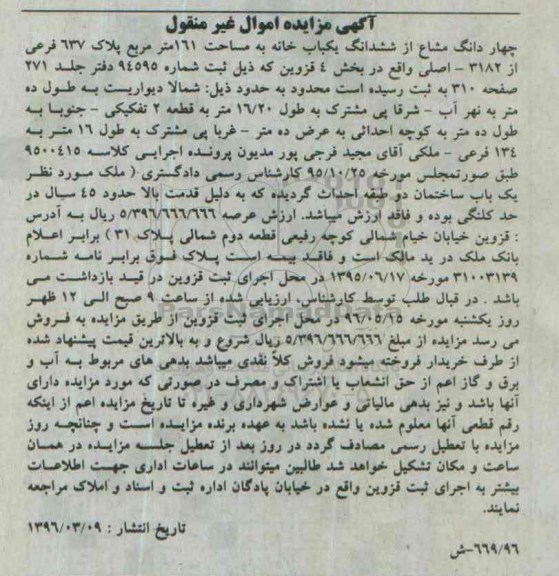 آگهی مزایده اموال غیر منقول
چهار دانگ مشاع از ششدانگ یکباب خانه به مساحت ۱۶۱متر مربع پلاک ۶۳۷ فرعی
از ۳۱۸۲ - اصلی واقع در بخش ۴ قزوین که ذیل ثبت شماره ۹۴۵۹۵ دفتر جلد ۲۷۱
صفحه ۳۱۰ به ثبت رسیده است محدود به حدود ذیل: شمالا دیواریست به طول ده
متر به نهر آب - شرقا پی مشترک به طول ۱۶/۲۰ متر به قطعه ۲ تفکیکی - جنوبا به
طول ده متر به کوچه احداثی به عرض ده متر - غربا پی مشترک به طول ۱۶ متر به
۱۳۴ فرعی - ملکی آقای مجید فرجی پور مدیون پرونده اجرایی کلاسه ۹۵۰۰۴۱۵
طبق صورتمجلس مورخه ۹۵/۱۰/۲۵ کارشناس رسمی دادگستری ( ملک مورد نظر
یک باب ساختمان دو طبقه احداث گردیده که به دلیل قدمت بالا حدود ۴۵ سال در
حد کلنگی بوده و فاقد ارزش میباشد. ارزش عرصه ۵/۳۹۶/۶۶۶/۶۶۶ ریال به آدرس
: قزوین خیابان خیام شمالی کوچه رفیعی قطعه دوم شمالی پلاک ۳۱ ) برابر اعلام
بانک ملک در ید مالک است و فاقد بیمه است پلاک فوق برابر نامه شماره
۳۱۰۰۳۱۳۹ مورخه ۱۳۹۵/۰۶/۱۷ در محل اجرای ثبت قزوین در قید بازداشت می
باشد . در قبال طلب توسط کارشناس، ارزیابی شده از ساعت ۹ صبح الی ۱۲ ظهر
روز یکشنبه مورخه ۹۶/۰۵/۱۵ در محل اجرای ثبت قزوین از طریق مزایده به فروش
می رسد مزایده از مبلغ ۵/۳۹۶/۶۶۶/۶۶۶ ریال شروع و به بالاترین قیمت پیشنهاد شده
از طرف خریدار فروخته میشود فروش کلاً نقدی میباشد بدهی های مربوط به آب و
برق و گاز اعم از حق انشعاب یا اشتراک و مصرف در صورتی که مورد مزایده دارای
آنها باشد و نیز بدهی مالیاتی و عوارض شهرداری و غیره تا تاریخ مزایده اعم از اینکه
رقم قطعی آنها معلوم شده یا نشده باشد به عهده برنده مزایده است و چنانچه روز
مزایده با تعطیل رسمی مصادف گردد در روز بعد از تعطیل جلسه مزایده در همان
ساعت و مکان تشکیل خواهد شد طالبین میتوانند در ساعات اداری جهت اطلاعات
بیشتر به اجرای ثبت قزوین واقع در خیابان پادگان اداره ثبت و اسناد و املاک مراجعه
نمایند.
تاریخ انتشار : ۱۳۹۶/۰۳/۰۹
۶۶۹/۹۶-ش